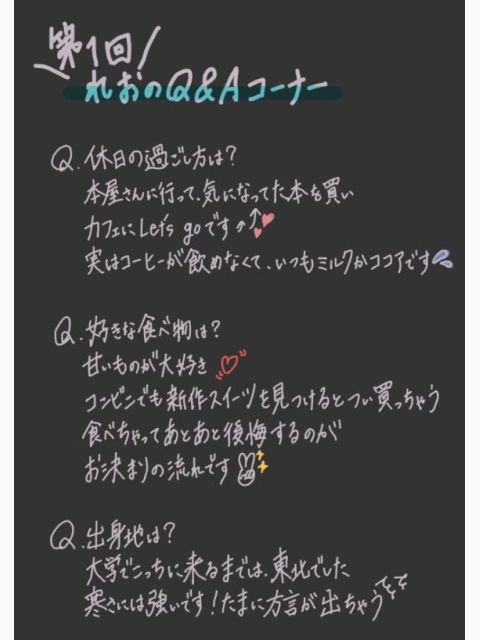 第1回!
れおのQ&Aコーナー
Q.休日の過ごし方は?
本屋さんに行って、気になってた本を買い
カフェにLet's goです↗↑
実はコーヒーが飲めなくて、いつもミルクかココアです
Q.好きな食べ物は?
甘いものが大好き
コンビニでも新作スイーツを見つけるとつい買っちゃう
食べちゃってあとあと後悔するのが
お決まりの流れです
Q.出身地は?
大学でこっちに来るまでは、東北でした
寒さには強いです!たまに方言が出ちゃう